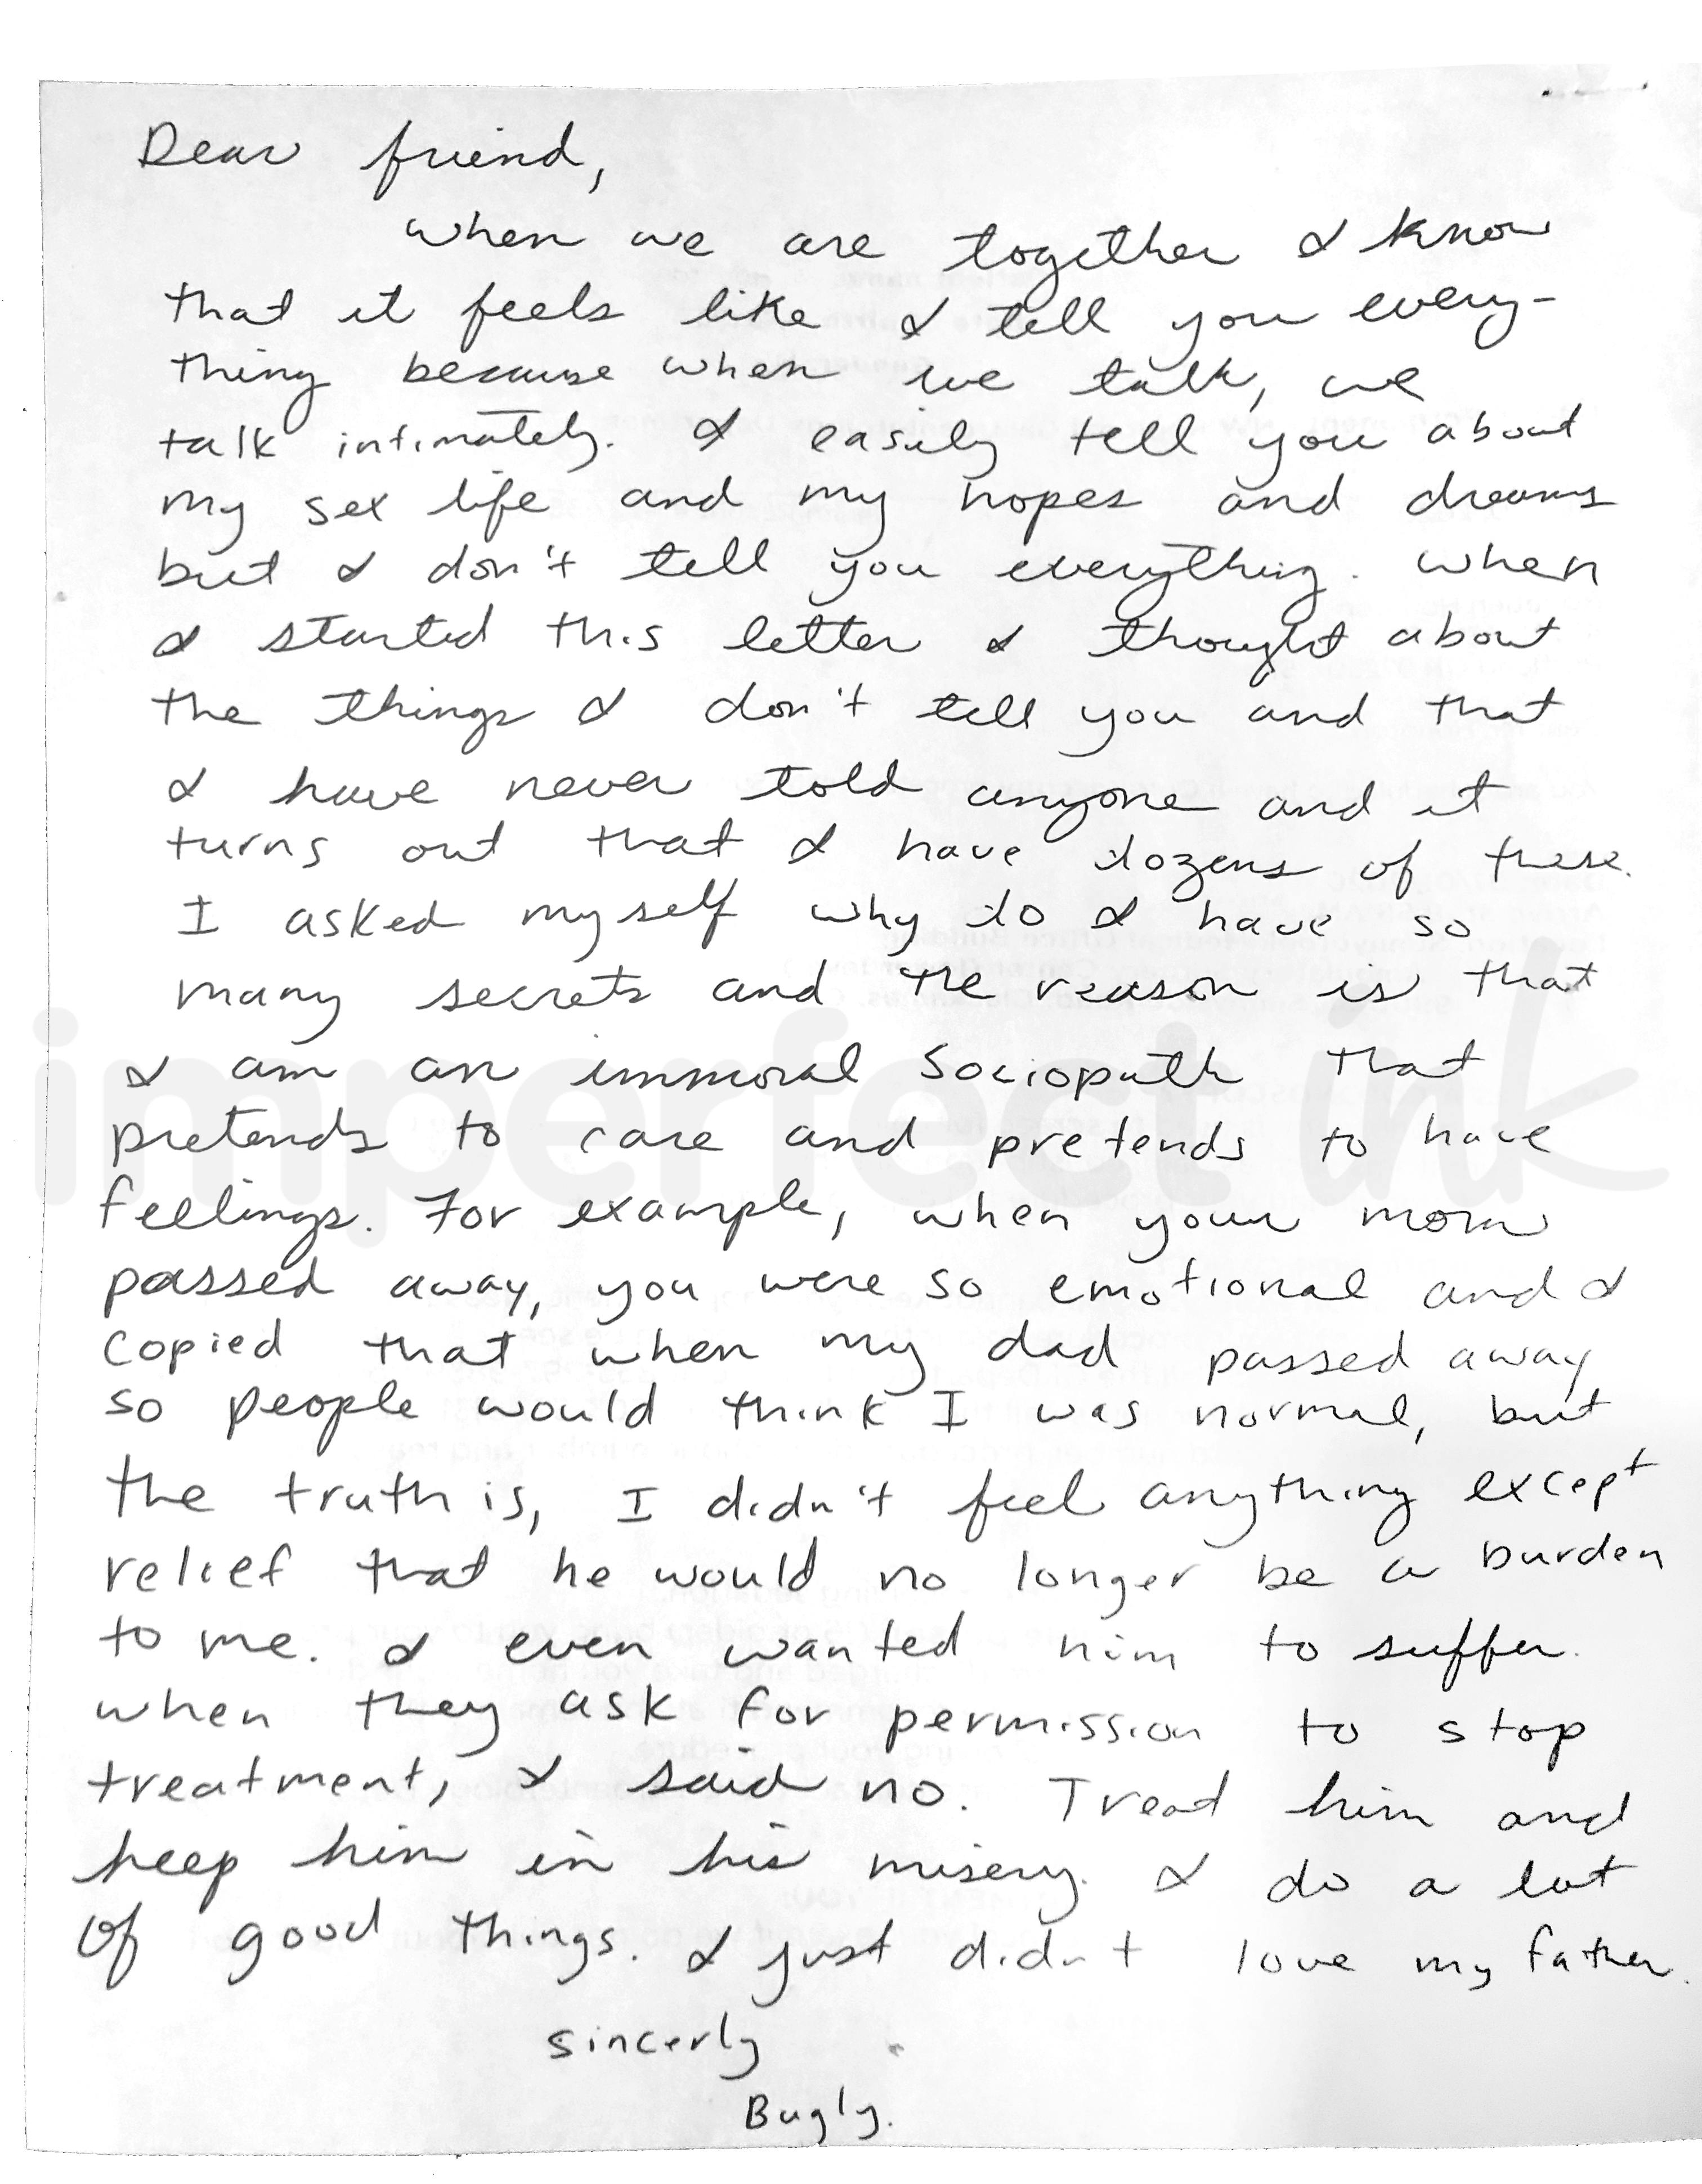 Dear friend,
when we are together I know
that it feels like I tell you every-
thing because when we talk, we
talk intimately. I easily tell you about
my sex life and my hopes and dreams
but I don't tell you everything. When
I started this letter I thought about
the things I don't tell you and that
I have never told anyone and it
turns out that I have dozens of these.
I asked myself why do I have so
many secrets and the reason is that
I am an immoral sociopath that
pretends to care and pretends to have
feelings. For example, when your mom
passed away, you were so emotional and I
copied that when my dad passed away
so people would think I was normal, but
the truth is, I didn't feel anything except
relief that he would no longer be a burden
to me. I even wanted him to suffer.
when they ask for permission to stop
treatment, I said no. Treat him and
keep him in his misery. I do a lot
of good things. I just didn't love my father.
sincerly
Bugly.
imperfect ink